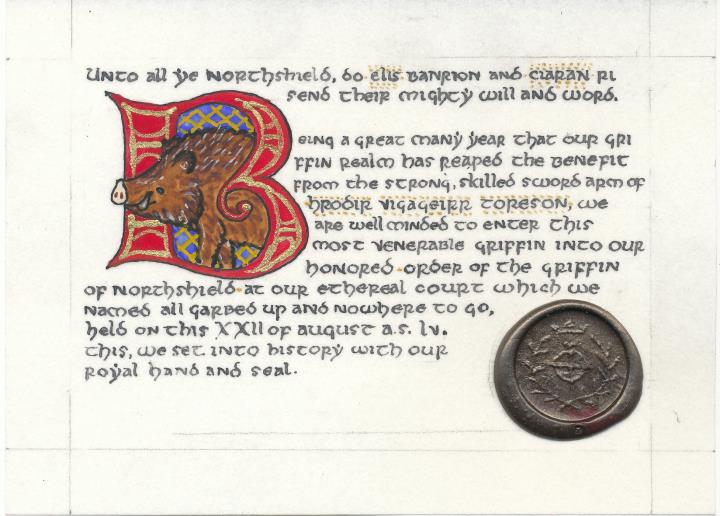 Unto all ye Northshield, do Elis Banrion and Ciaran Ri
send their mighty will and word.
Being a great many year that our gri
ffin realm has reaped the benefit
from the strong, skilled sword arm of
Hrodir Vigageirr Toreson, we
are well minded to enter this
most venerable griffin into our
honored order of the griffin
of Northshield at our ethereal court which we
named all garbed up and nowhere to go,
held on this XXII of august a.s. lv.
this, we set into history with our
royal hand and seal.